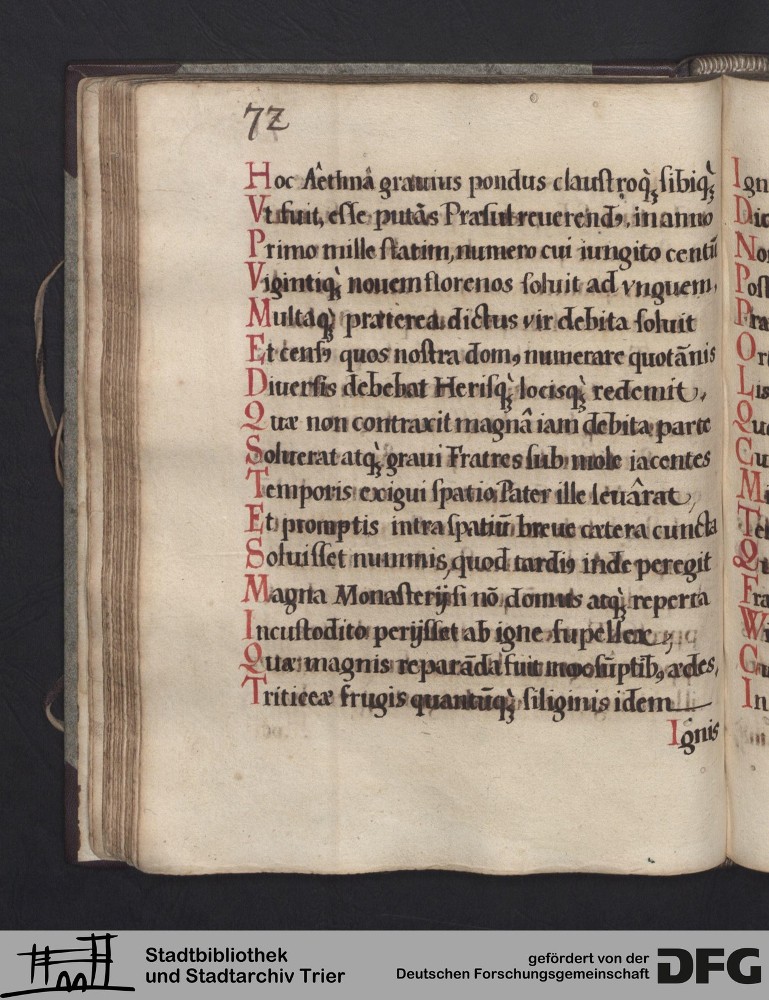 72
Hoc Aêthnâ grauius pondus claustroq̀ꝫ sibiq̀ꝫ
Vt fuit, esse putãs Præsul reuerendꝰ, in anno
Primo mille statim, numero cui iungito centũ
Vigintiq̀ꝫ nouem florenos soluit ad vnguem,
Multaq̀ꝫ præterea dictus vir debita soluit
Et censꝰ quos nostra domꝰ numerare quotãnis
Diuersis debebat Herisq̀ꝫ locisq̀ꝫ redemit,
Quæ non contraxit magnâ iam debita parte
Soluerat atq̀ꝫ graui Fratres sub mole iacentes
Temporis exigui spatio, Pater ille leuârat,
Et promptis intra spatiũ breue cætera cuncta
Soluisset nummis, quod tardiꝰ inde peregit
Magna Monasterij si nõ domus atq̀ꝫ reperta
Incustodito perijsset ab igne supellex,
Quæ magnis reparãda fuit sũptibꝰ ædes,
Triticeæ frugis quantũq̀ꝫ siliginis idem
Ignis
Stadtbibliothek
und Stadtarchiv Trier
gefördert von der
Deutschen Forschungsgemeinschaft
DFG